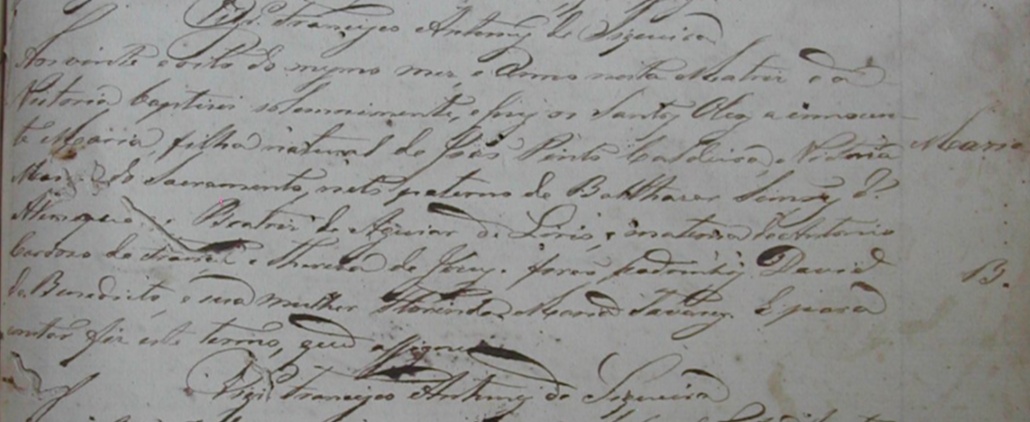 Vigr.º Francisco Antonio de Sequeira
Aos vinte e oito do mesmo mez e Anno nesta Matriz da
Victoria baptizei solemnimente, e puz os Santos Oleos a innocen-
te Maria, filha natural de João Pinto Caldeira, e Victoria Maria
Maria do Sacramento, neta paterna de Balthazar
Beatriz de Aguiar de Liris, e materna de Antonio
Cardoso de França e Thereza de Jesus. forão padrinhos David
B.
de Benedicto, e sua mulher Florinda Tavares. E para
constar fiz este termo, que assignei
Vigr.º Francisco Antonio de Sequeira